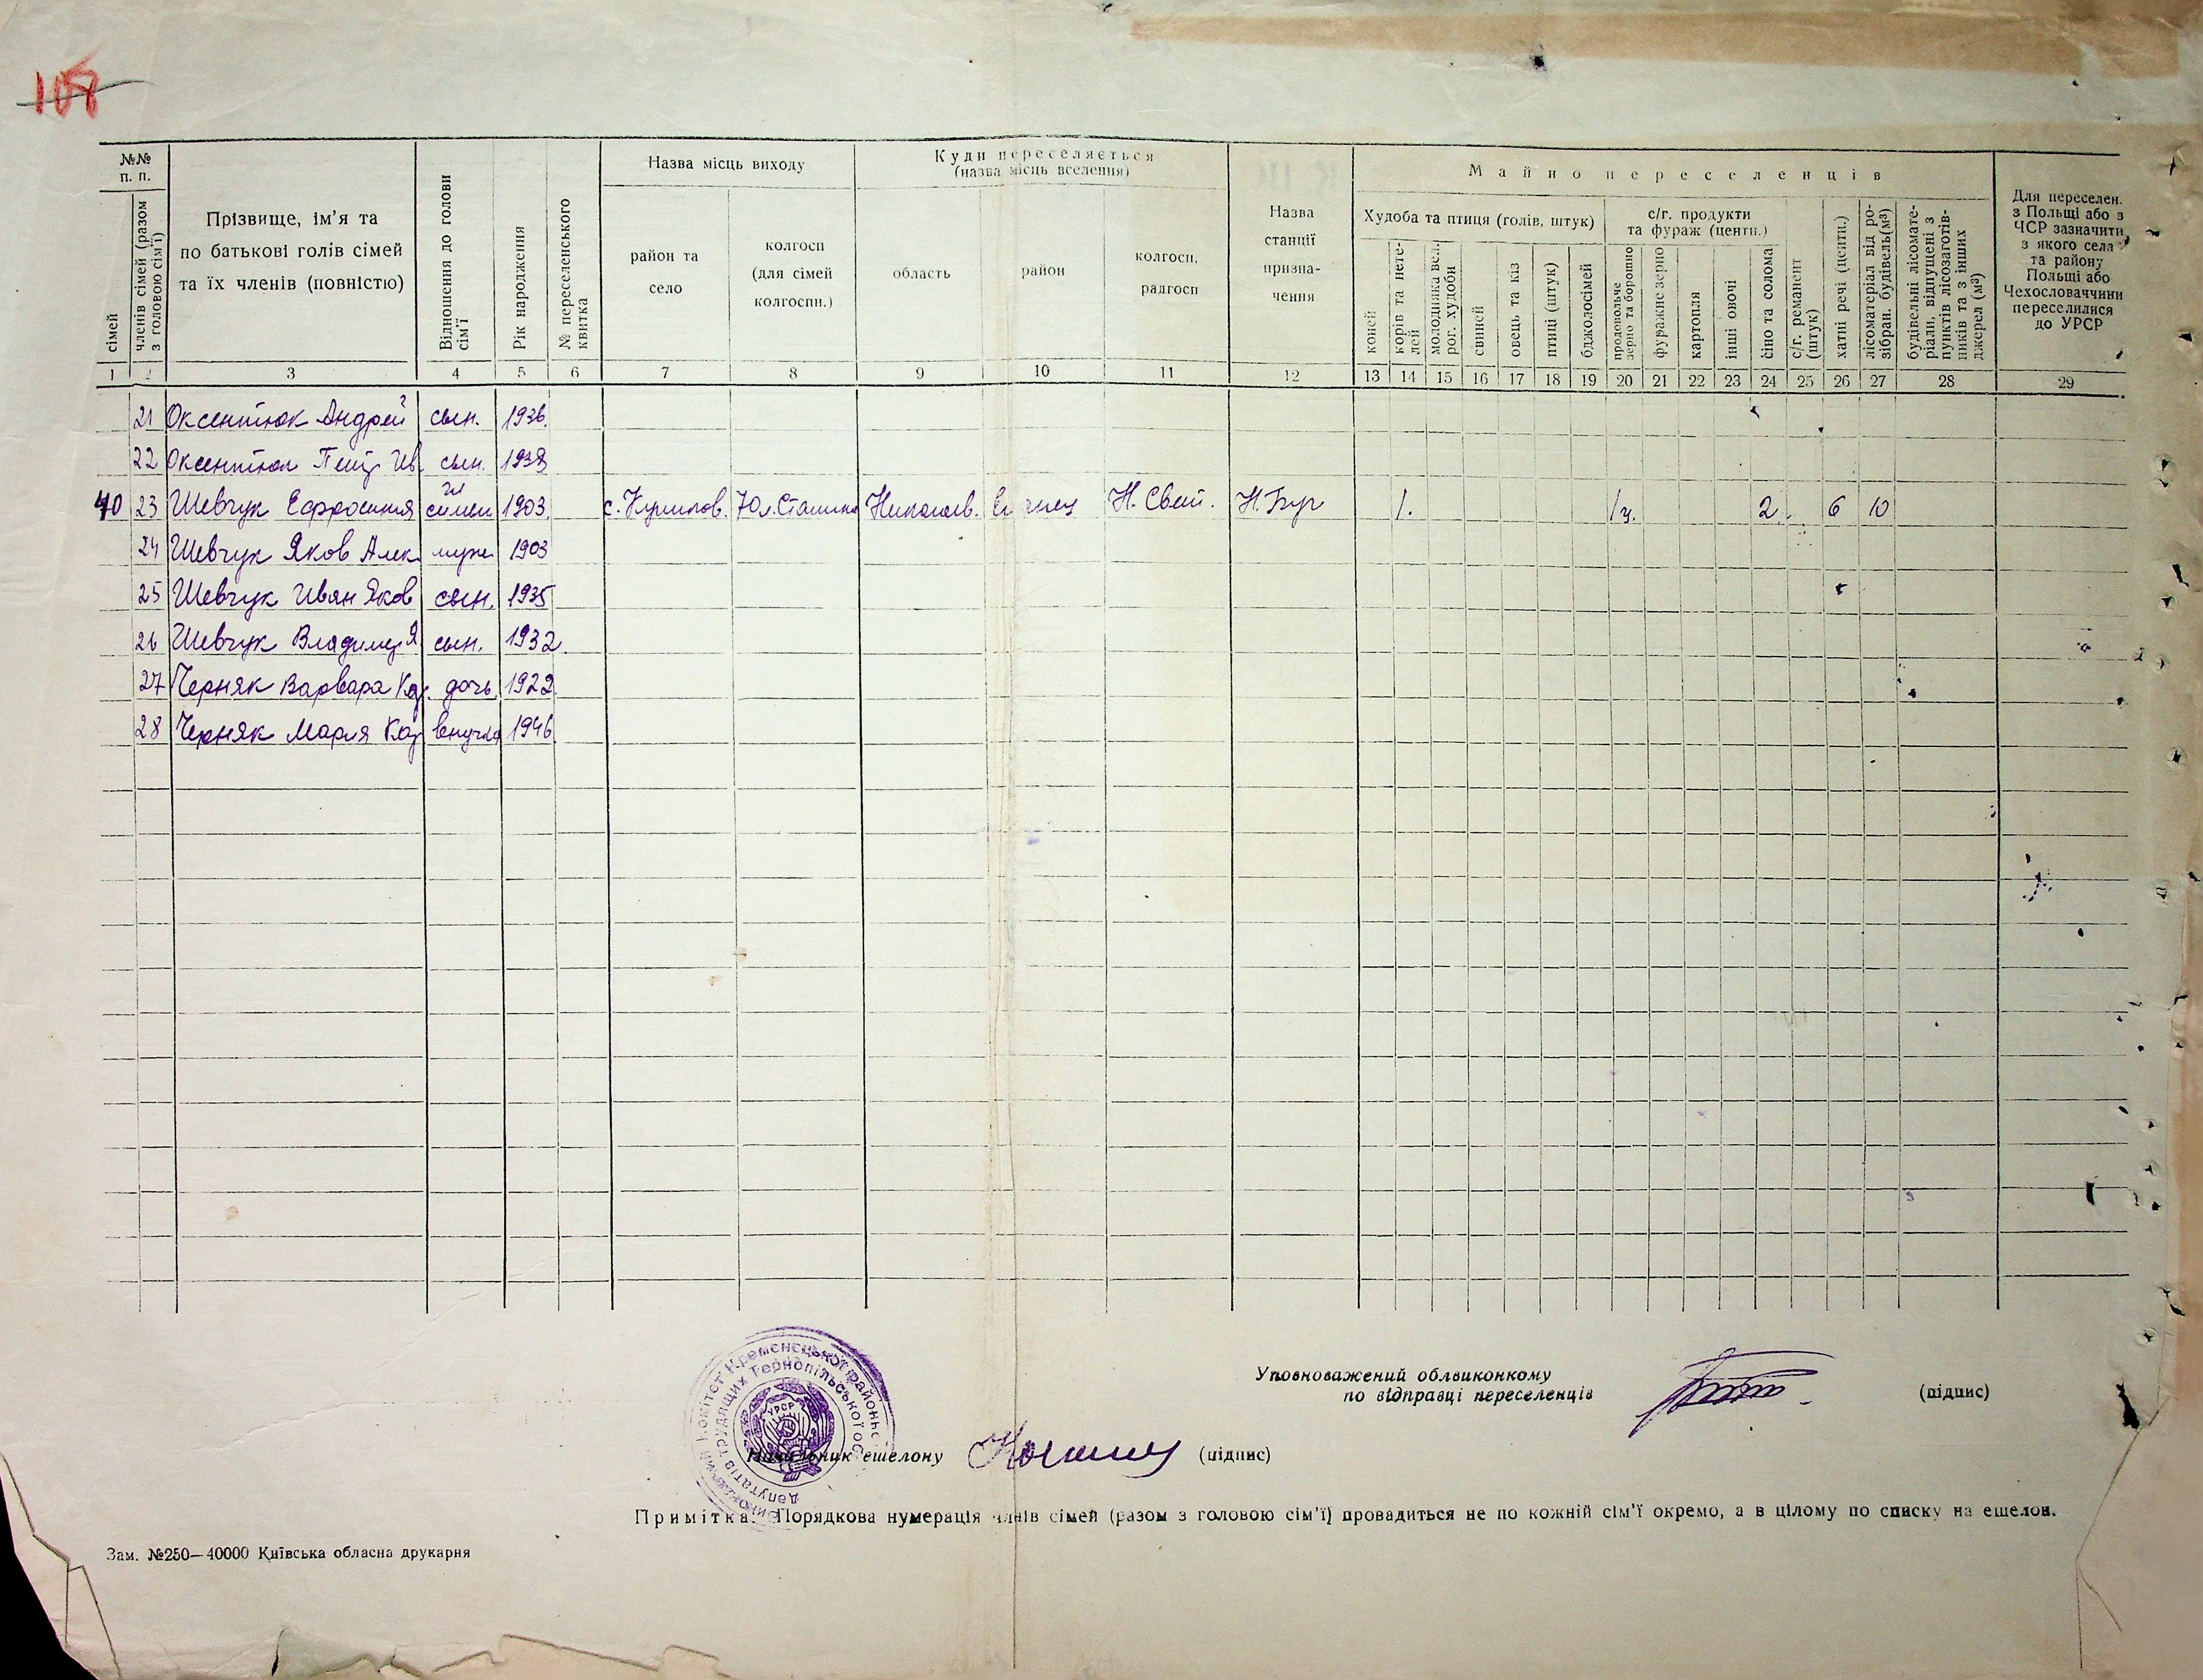 108
№№ п. п.
сімей
членів сімей (разом з головою сім'ї)
Прізвище, ім'я та
по батькові голів сімей
та їх членів (повністю)
Відношення до голови сім'ї
Рік народження
№ переселенського квитка
Назва місць виходу
район та село
колгосп (для сімей колгоспн.)
Куди переселяється
(назва місць вселення)
область
район
колгосп, радгосп
Назва станції призна-чення
Майно переселенців
Худоба та птиця (голів, штук)
коней
корів та нете-лей
молодняка вел. рог. худоби
свиней
овець та кіз
птиці (штук)
бджолосімей
с/г. продукти та фураж (центн.)
продовольче зерно та борошно
фуражне зерно
картопля
інші овочі
сіно та солома
с/г. реманент (штук)
хатні речі (центн.)
лісоматеріал від ро-зібран. будівель(м³)
будівельні лісомате-ріали, відпущені з пунктів лісозаготів-ників та з інших джерел (м³)
Для переселен. з Польщі або з ЧСР зазначити з якого села та району Польщі або Чехословаччини переселилися до УРСР
1 2 3 4 5 6 7 8 9 10 11 12 13 14 15 16 17 18 19 20 21 22 23 24 25 26 27 28 29
21 Оксентюк Андрей сын. 1936.
22 Оксентюк Пет Ив. сын. 1938
40 23 Шевчук Ефросиния гл семьи 1903 Николаев. Н. Свет. Н. Буг 1. 1ц. 2. 6 10
24 Шевчук Яков Алек муж 1903
25 Шевчук Иван Яков сын. 1935
26 Шевчук Владимер Я сын. 1932.
27 Черняк Варвара дочь. 1922
28 Черняк Мария Каз внучка 1946
Уповноважений облвиконкому
по відправці переселенців (підпис)
Виконавчий комітет Кременецької районної
депутатів трудящих Тернопільської
УРСР
Начальник ешелону (підпис)
Примітка: Порядкова нумерація членів сімей (разом з головою сім'ї) провадиться не по кожній сім'ї окремо, а в цілому по списку на ешелон.
Зам. №250—40000 Київська обласна друкарня